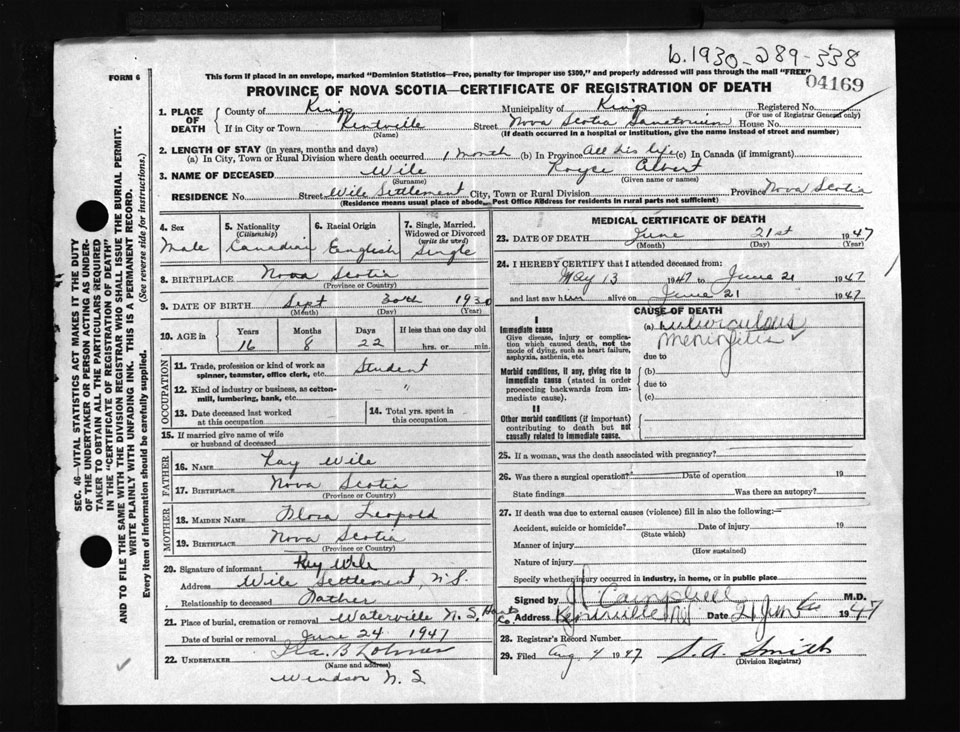 b. 1930-289-338
FORM 6
This form if placed in an envelope, marked "Dominion Statistics—Free, penalty for improper use $300," and properly addressed will pass through the mail "FREE"
04169
PROVINCE OF NOVA SCOTIA—CERTIFICATE OF REGISTRATION OF DEATH
1. PLACE OF DEATH County of Kings Municipality of Kings Registered No.
(For use of Registrar General only)
If in City or Town Kentville Street Nova Scotia Sanatorium House No.
(Name) (If death occurred in a hospital or institution, give the name instead of street and number)
2. LENGTH OF STAY (in years, months and days)
(a) In City, Town or Rural Division where death occurred 1 month (b) In Province All his life (c) In Canada (if immigrant)
3. NAME OF DECEASED Wile Royce Albert
(Surname) (Given name or names)
RESIDENCE No. Street Wile Settlement City, Town or Rural Division Province Nova Scotia
(Residence means usual place of abode. Post Office Address for residents in rural parts not sufficient)
4. Sex
Male
5. Nationality (Citizenship)
Canadian
6. Racial Origin
English
7. Single, Married, Widowed or Divorced (write the word)
Single
8. BIRTHPLACE Nova Scotia
(Province or Country)
9. DATE OF BIRTH Sept 30th 1930
(Month) (Day) (Year)
10. AGE in Years Months Days If less than one day old
16 8 22 hrs. or min.
OCCUPATION
11. Trade, profession or kind of work as spinner, teamster, office clerk, etc. Student
12. Kind of industry or business, as cotton-mill, lumbering, bank, etc. "
13. Date deceased last worked at this occupation
14. Total yrs. spent in this occupation
15. If married give name of wife or husband of deceased
FATHER
16. NAME Ray Wile
17. BIRTHPLACE Nova Scotia
(Province or Country)
MOTHER
18. MAIDEN NAME Flora Leopold
19. BIRTHPLACE Nova Scotia
(Province or Country)
20. Signature of informant Ray Wile
Address Wile Settlement N.S.
Relationship to deceased Father
21. Place of burial, cremation or removal Waterville N.S, Hants Co
Date of burial or removal June 24 1947
22. UNDERTAKER
(Name and address)
Windsor N.S
MEDICAL CERTIFICATE OF DEATH
23. DATE OF DEATH June 21st 1947
(Month) (Day) (Year)
24. I HEREBY CERTIFY that I attended deceased from:
May 13 1947 to June 21 1947
and last saw him alive on June 21 1947
CAUSE OF DEATH
I
Immediate cause
Give disease, injury or complication which caused death, not the mode of dying, such as heart failure, asphyxia, asthenia, etc.
(a) tuberculous
meningitis
due to
Morbid conditions, if any, giving rise to immediate cause (stated in order proceeding backwards from immediate cause).
(b)
due to
(c)
II
Other morbid conditions (if important) contributing to death but not causally related to immediate cause.
25. If a woman, was the death associated with pregnancy?
26. Was there a surgical operation? Date of operation 19
State findings Was there an autopsy?
27. If death was due to external causes (violence) fill in also the following:—
Accident, suicide or homicide? Date of injury 19
(State which)
Manner of injury
(How sustained)
Nature of injury
Specify whether injury occurred in industry, in home, or in public place
Signed by Campbell M.D.
Address Kentville NS Date 21 June 1947
28. Registrar's Record Number
29. Filed Aug 4 1947 S. A. Smith
(Division Registrar)
SEC. 46—VITAL STATISTICS ACT MAKES IT THE DUTY
OF THE UNDERTAKER OR PERSON ACTING AS UNDER-
TAKER TO OBTAIN ALL THE PARTICULARS REQUIRED
IN THE "CERTIFICATE OF REGISTRATION OF DEATH"
AND TO FILE THE SAME WITH THE DIVISION REGISTRAR WHO SHALL ISSUE THE BURIAL PERMIT.
WRITE PLAINLY WITH UNFADING INK. THIS IS A PERMANENT RECORD.
Every item of information should be carefully supplied. (See reverse side for instructions.)